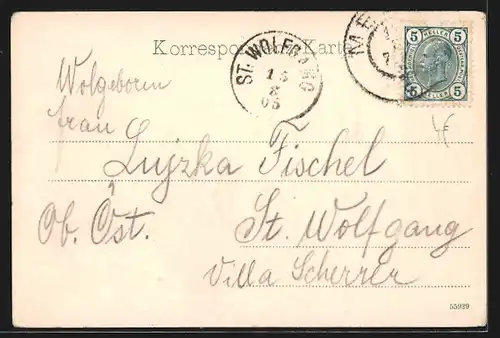 Korrespondenz-Karte
ST. WOLFGANG
15
8
05
5 HELLER 5
5 HELLER 5
4€
Wolgeborin
frau
Lujzka Fischel
Ob. Öst. St. Wolfgang
Villa Scherrer
55929